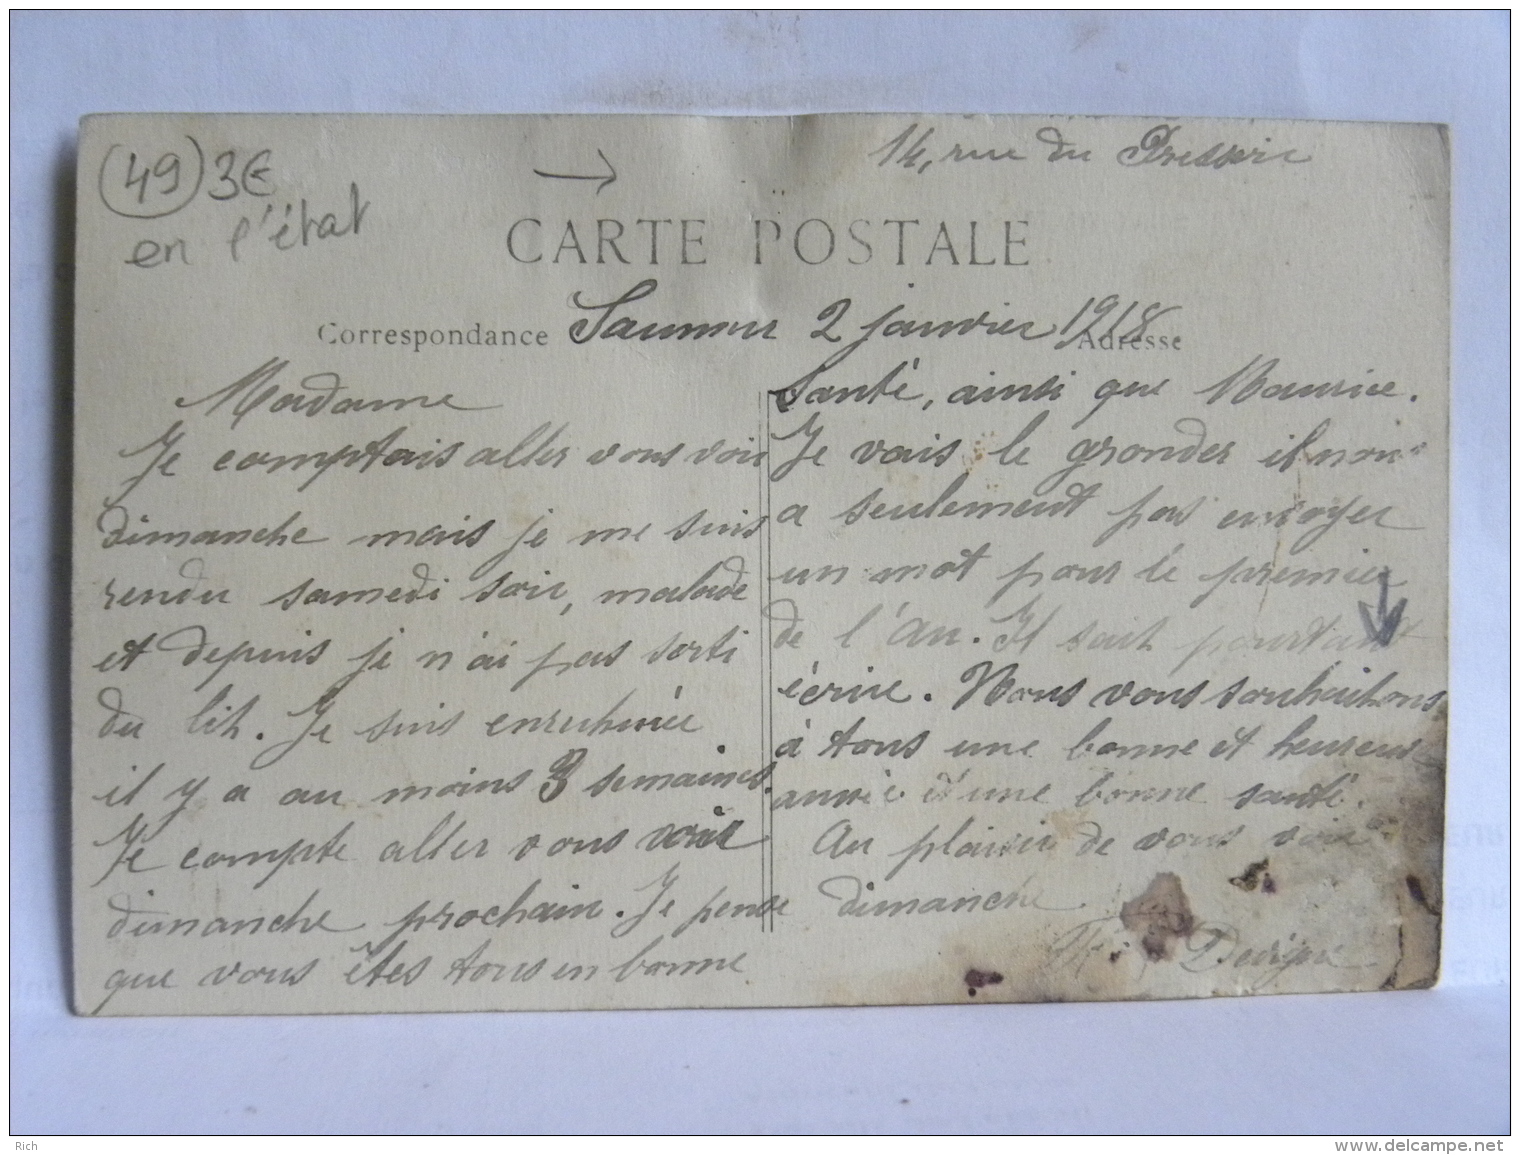 (49) 3€
en l'état
14, rue du
CARTE POSTALE
Correspondance
Adresse
Saumur 2 janvier 1918
Madame
Je comptais aller vous voir
dimanche mais je me suis
rendu samedi soir, malade
et depuis je n'ai pas sorti
du lit. Je suis enruhmée
il y a au moins 3 semaines.
Je compte aller vous voir
dimanche prochain. Je pense
que vous êtes tous en bonne
santé, ainsi que Maurice.
Je vais le gronder il nous
a seulement pas envoyer
un mot pour le premier
de l'An. Il sait pourtant
écrire. Nous vous souhaitons
à tous une bonne et heureuse
année d'une bonne santé.
Au plaisir de vous voir
dimanche.
Rich
www.delcampe.net